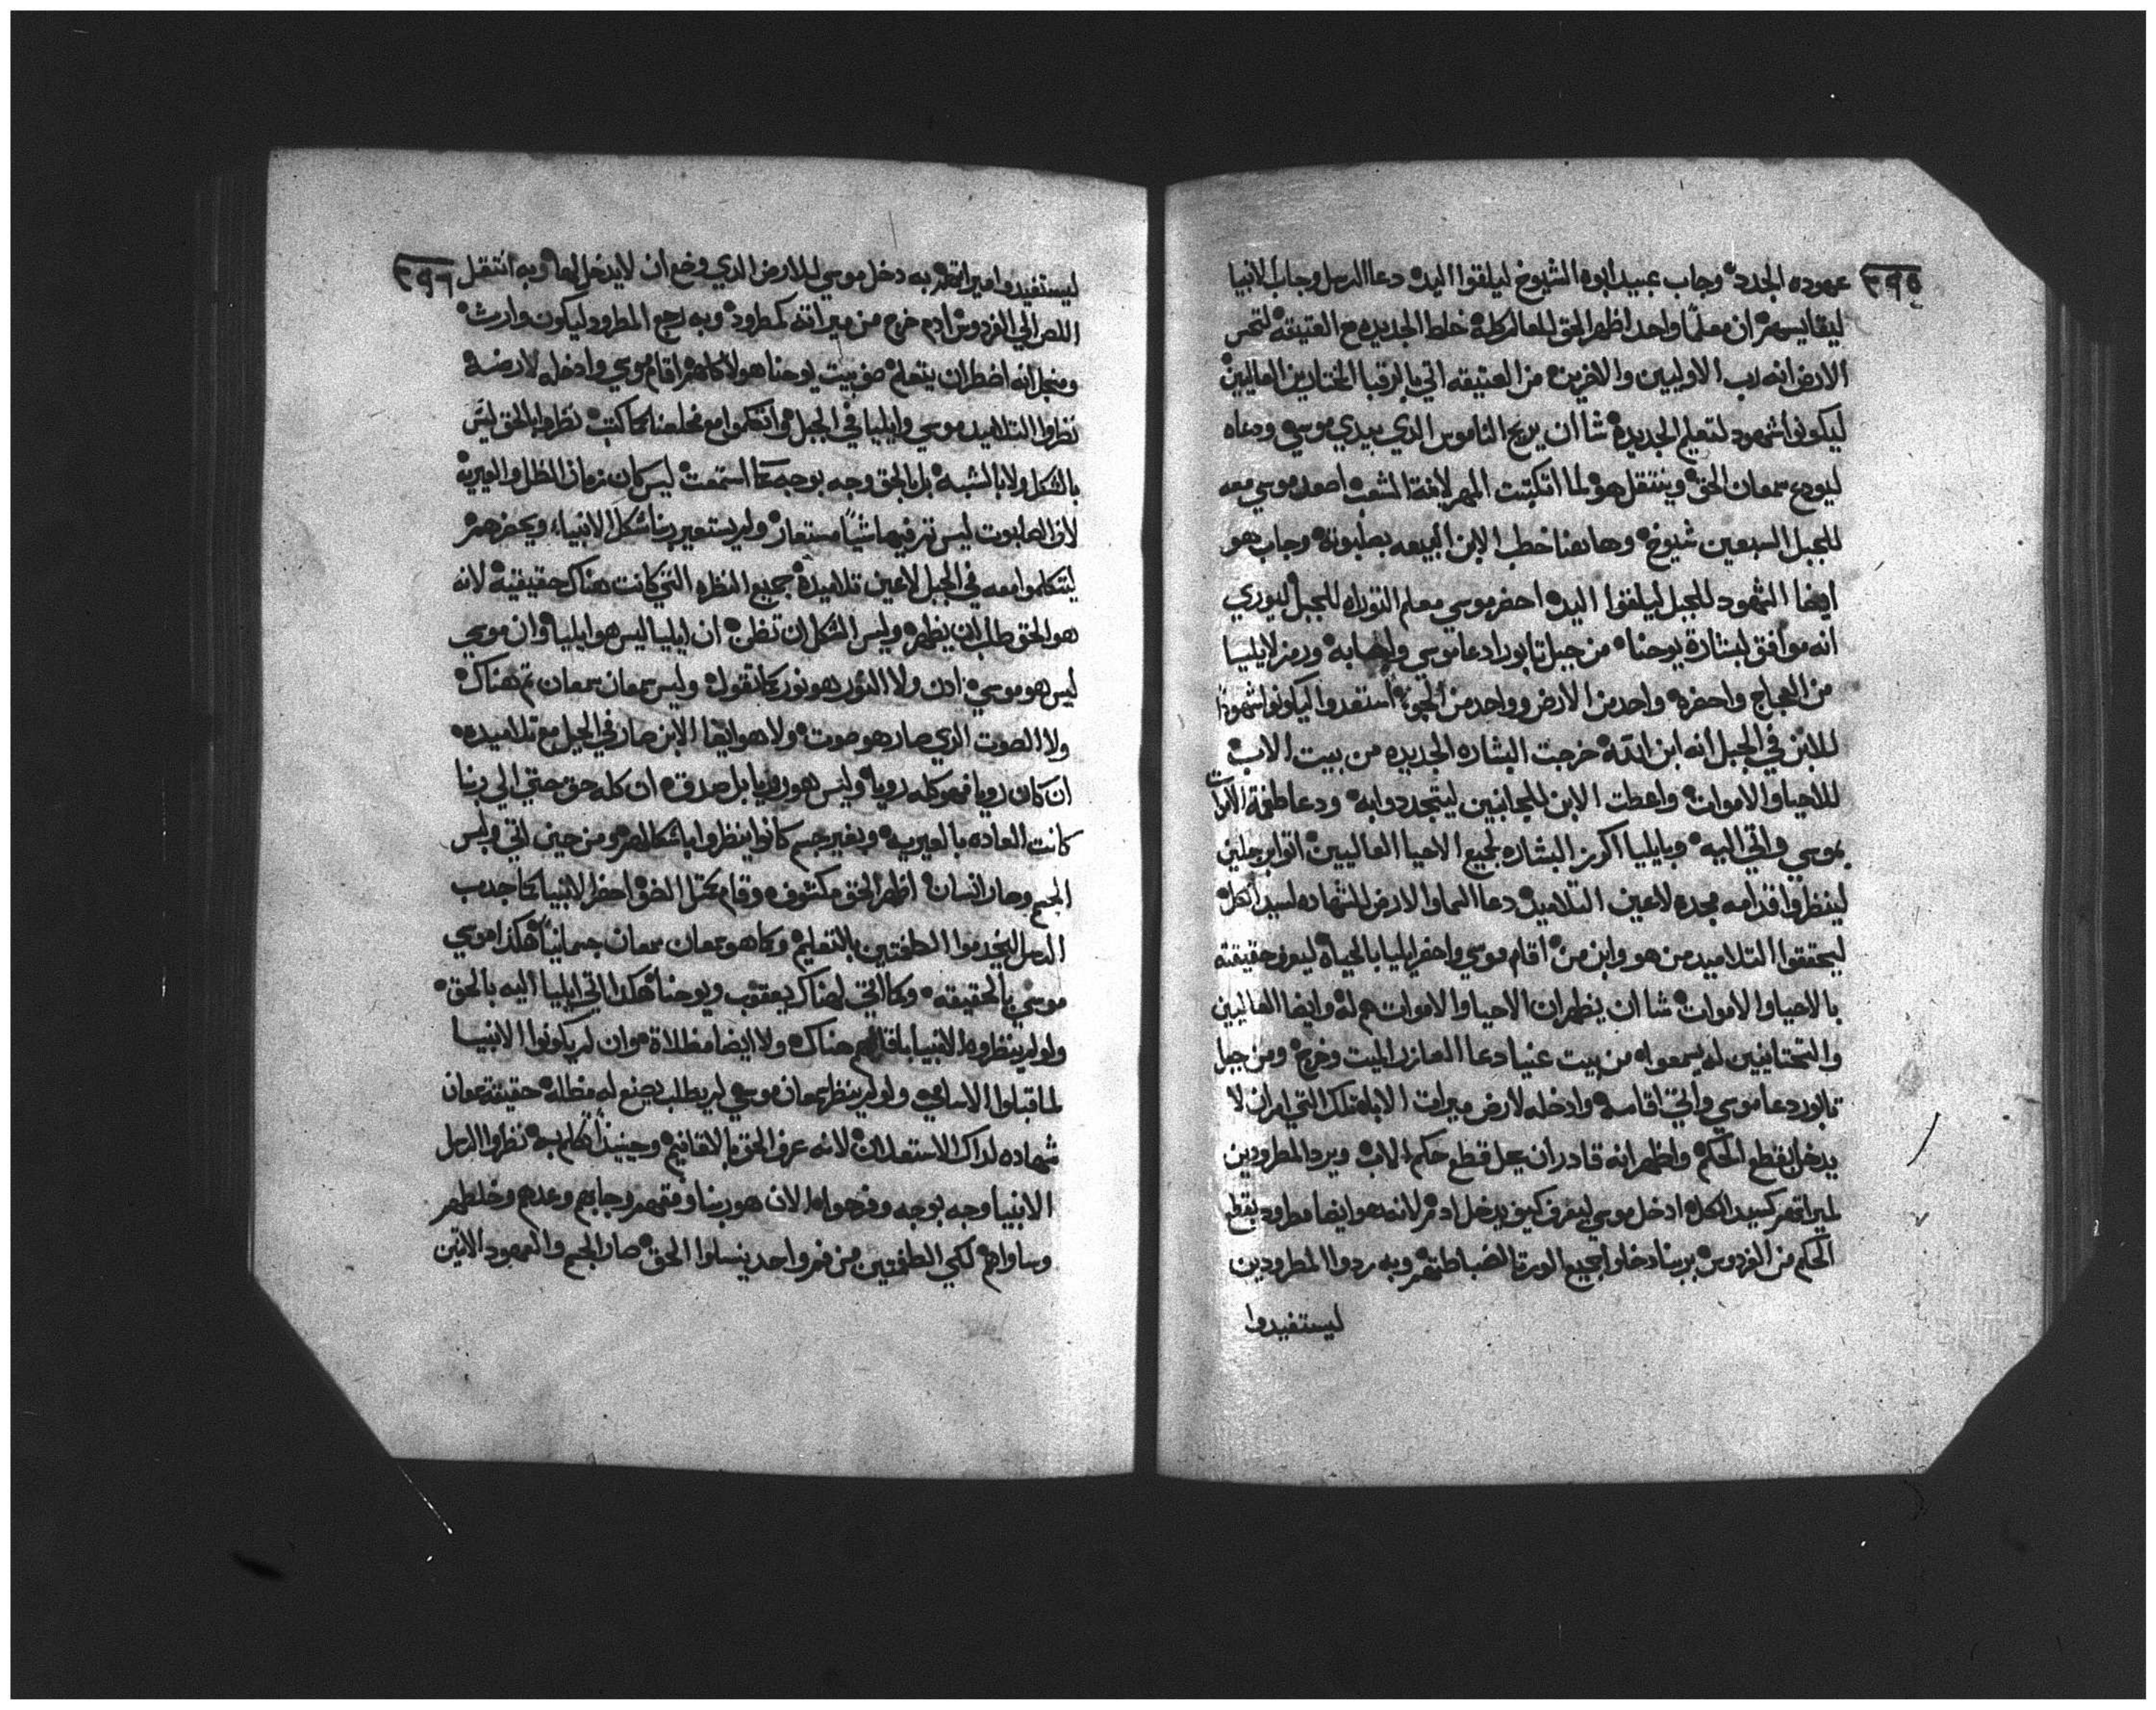 ٣٩٥
عهوده الجدد وجاب عبيد ابوه الشيوخ ليلقوا اليه دعا الرسل وجاب الانبيا
ليقايسهم ان معلما واحد اظهر الحق للعالم كله خلط الجديده مع العتيقه لتحس
الارض انه رب الاوليين والاخرين من العتيقه اتي بالرقبا المختارين العاليين
ليكونوا شهود لتعليم الجديده شا ان يريح الناموس الذي بيدي موسي ودعاه
ليودع سمعان الحق وينتقل هو لما انكتبت المهر لابنة الشعب اصعد موسي معه
للجبل السبعين شيوخ وهاهنا خطب الابن البيعه بصلبوته وجاب هو
ايضا الشهود للجبل ليلقوا اليه احضر موسي معلم التوراه للجبل ليوري
انه موافق لبشارة يوحنا من جبل تابور دعا موسي واصحابه ورمز لايليا
من العجاج واحضره واحد من الارض وواحد من الجو استعدوا ليكونوا شهودا
للابن في الجبل انه ابن الله خرجت البشاره الجديده من بيت الاب
للاحيا والاموات واعطت الابن للجانبين ليتجددوا به ودعا طغمة الاموات
بموسي واتي اليه وبايليا اكرز البشاره لجميع الاحيا العاليين اتوا برجلين
لينظروا قدامه مجده لاعين التلاميد دعا السما والارض للشهاده لسيد الكل
ليحققوا التلاميد من هو وابن من اقام موسي واحضر ايليا بالحياه ليعرف حقيقته
بالاحيا والاموات شا ان يظهر ان الاحيا والاموات هم له وايضا العاليين
والتحتانيين له يسمعوا من بيت عنيا دعا العازر الميت وخرج ومن جبل
تابور دعا موسي واتي اقامه وادخله لارض ميرات الاباء تلك التي امر ان لا
يدخل بقطع الحكم واظهر انه قادر ان يحل قطع حكم الاب ويرد المطرودين
لميراتهم كسيد الكل ادخل موسي ليعرف كيف يدخل ادم لانه هو ايضا مطرود بقطع
الحكم من الفردوس بربنا دخلوا جميع الورثة لضباطتهم وبه ردوا المطرودين
ليستفيدوا
٣٩٦
ليستفيدوا ميراتهم به دخل موسي للارض الدي وضع ان لا يدخل لها وبه انتقل
اللص الي الفردوس ادم خرج من ميراته كمطرود وبه رجع المطرود ليكون وارث
ومنجل انه اضطر ان يتعلم صف بيت يوحنا هولا كلهم اقام موسي وادخله لارضه
نظروا التلاميد موسي وايليا في الجبل واتكلموا مع مخلصنا كما كتب نظروا بالحق ليس
بالشكل ولا بالشبه بل بالحق وجه بوجه كما استمعت ليس كان زمان الظل والعيريه
لان الصلبوت ليس تم فيها شيا مستعار ولم يستعير ربنا شكل الانبياء ويحضرهم
ليتكلموا معه في الجبل لاعين تلاميده جميع النظره التي كانت هناك حقيقيه لانه
هو الحق طلب ان يظهر وليس الشكل ان تظن ان ايليا ليس هو ايليا وان موسي
ليس هو موسي ادن ولا النور هو نور كما تقول وليس سمعان سمعان تم هناك
ولا الصوت الدي صار هو صوت ولا هو ايضا الابن صار في الجبل مع تلاميده
ان كان رويا فهو كله رويا وليس هو رويا بل صدق ان كله حق حتي الي ربنا
كانت العاده بالعيريه وبغير جسم كانوا ينظروا باشكالهم ومن حين اتي ولبس
الجسم وصار انسان اظهر الحق مكشوف وقام بمقتل الضو احضر الانبيا كما جدب
الرسل ليخدموا الطقتين بالتعليم وكما هو سمعان سمعان جسمانيا هكدا موسي
موسي بالحقيقه وكما اتي لهناك يعقوب ويوحنا هكدا اتي ايليا اليه بالحق
ولو لم ينظروه الانبيا باقانيم هناك ولا ايضا مظلاة وان لم يكونوا الانبيا
لما قبلوا الاسامي ولو لم ينظر سمعان موسي لم يطلب يصنع له مظله حقيقة سمعان
شهاده لداك الاستعلان لانه عرف الحق بالاقانيم وحينيد اتكلم به نظروا الرسل
الانبيا وجه بوجه وفرحوا الان هو ربنا وفقهم وجابهم وعدهم وخلطهم
وساواهم لكي الطقتين من فم واحد ينسلوا الحق صار الجسم والعهود الاتنين